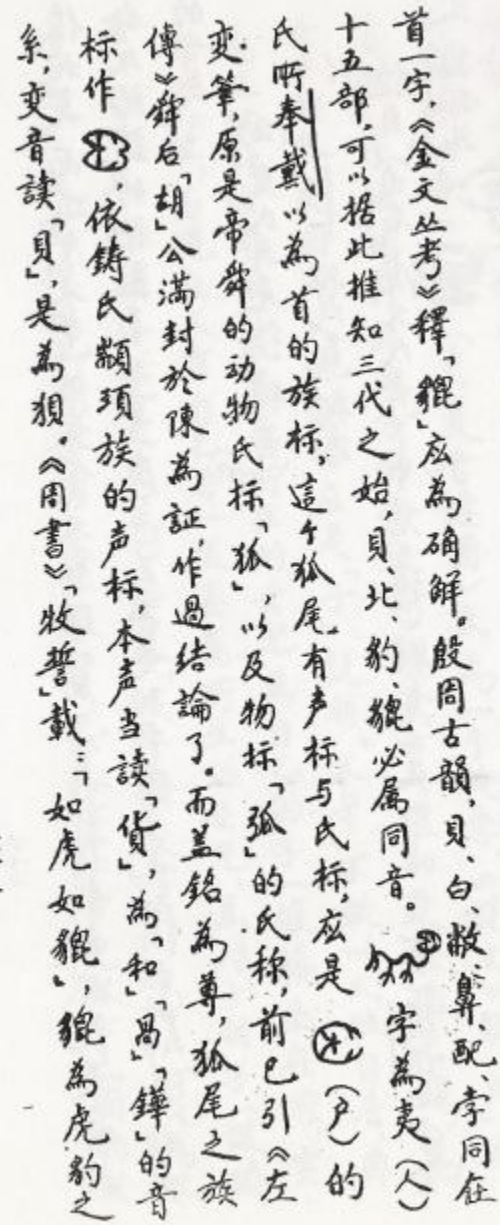 首一字，《金文丛考》釋「貔」应為确解。殷周古韻，貝、白、敝、鼻、配、孛同在
十五部，可以据此推知三代之始，貝、北、豹、貔必属同音。字為夷（人）
氏所奉戴以為首的族标，这个狐尾有声标与氏标，应是（戶）的
变筆，原是帝舜的动物氏标「狐」，以及物标「弧」的氏称，前已引《左
傳》舜后「胡」公滿封於陳為証，作過结論了。而盖銘為尊，狐尾之族
标作，依鋳氏顓頊族的声标，本声当讀「貨」，為「和」「咼」「鏵」的音
系，变音讀「貝」，是為狽。《周書》「牧誓」載：「如虎如貔」，貔為虎豹之